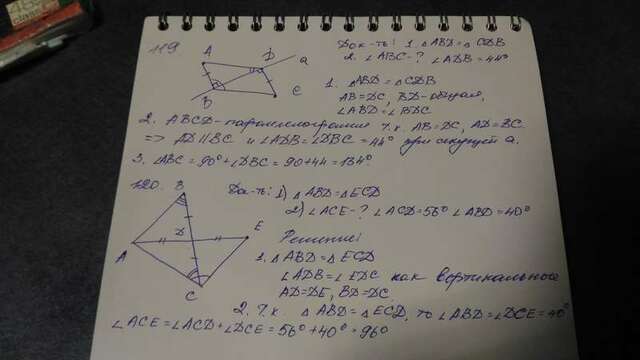 119
A
D
a
B
C
Док-ть: 1. △ABD = △CDB
2. ∠ABC-? ∠ADB = 44°
1. △ABD = △CDB
AB=DC, BD-общая,
∠ABD = ∠BDC
2. ABCD-параллелограмм т.к. AB=DC, AD=BC.
=> AD||BC и ∠ADB=∠DBC=44° при секущей a.
3. ∠ABC=90°+∠DBC=90+44=134°
120.
B
D
E
A
C
Док-ть: 1) △ABD=△ECD
2) ∠ACE-? ∠ACD=56° ∠ABD=40°
Решение:
1. △ABD=△ECD
∠ADB=∠EDC как вертикальные
AD=DE, BD=DC.
2. Т.к. △ABD=△ECD, то ∠ABD=∠DCE=40°
∠ACE=∠ACD+∠DCE=56°+40°=96°